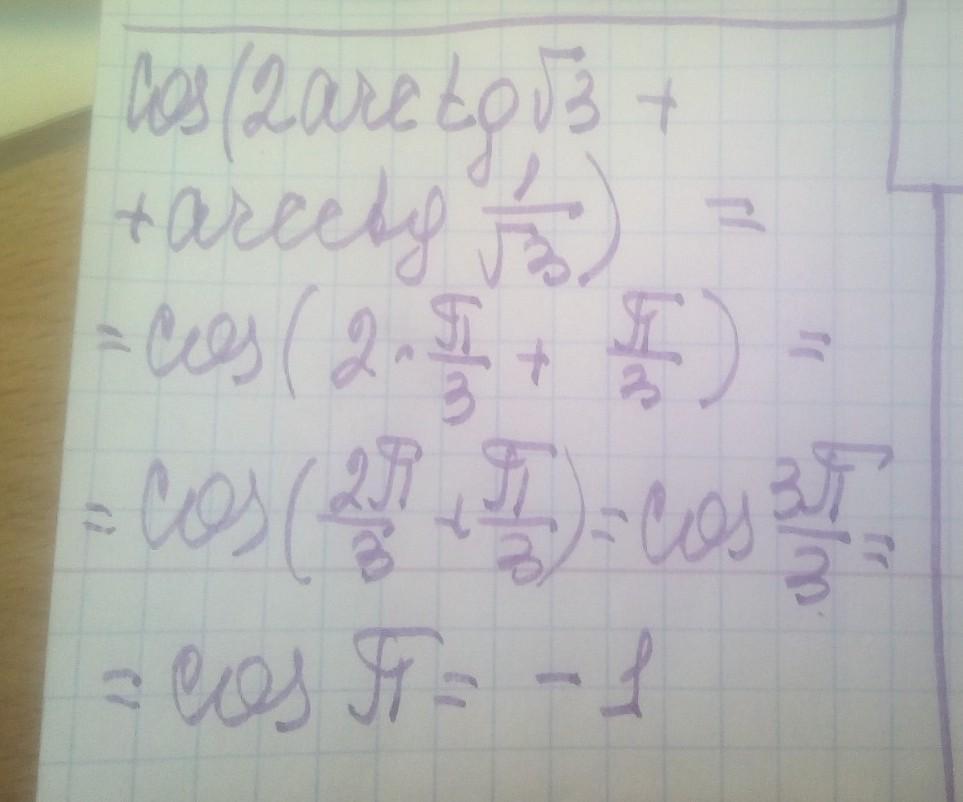 cos(2arctg√3 +
+arcctg 1/√3) =
= cos(2·π/3 + π/3) =
= cos(2π/3 + π/3) = cos 3π/3 =
= cos π = -1